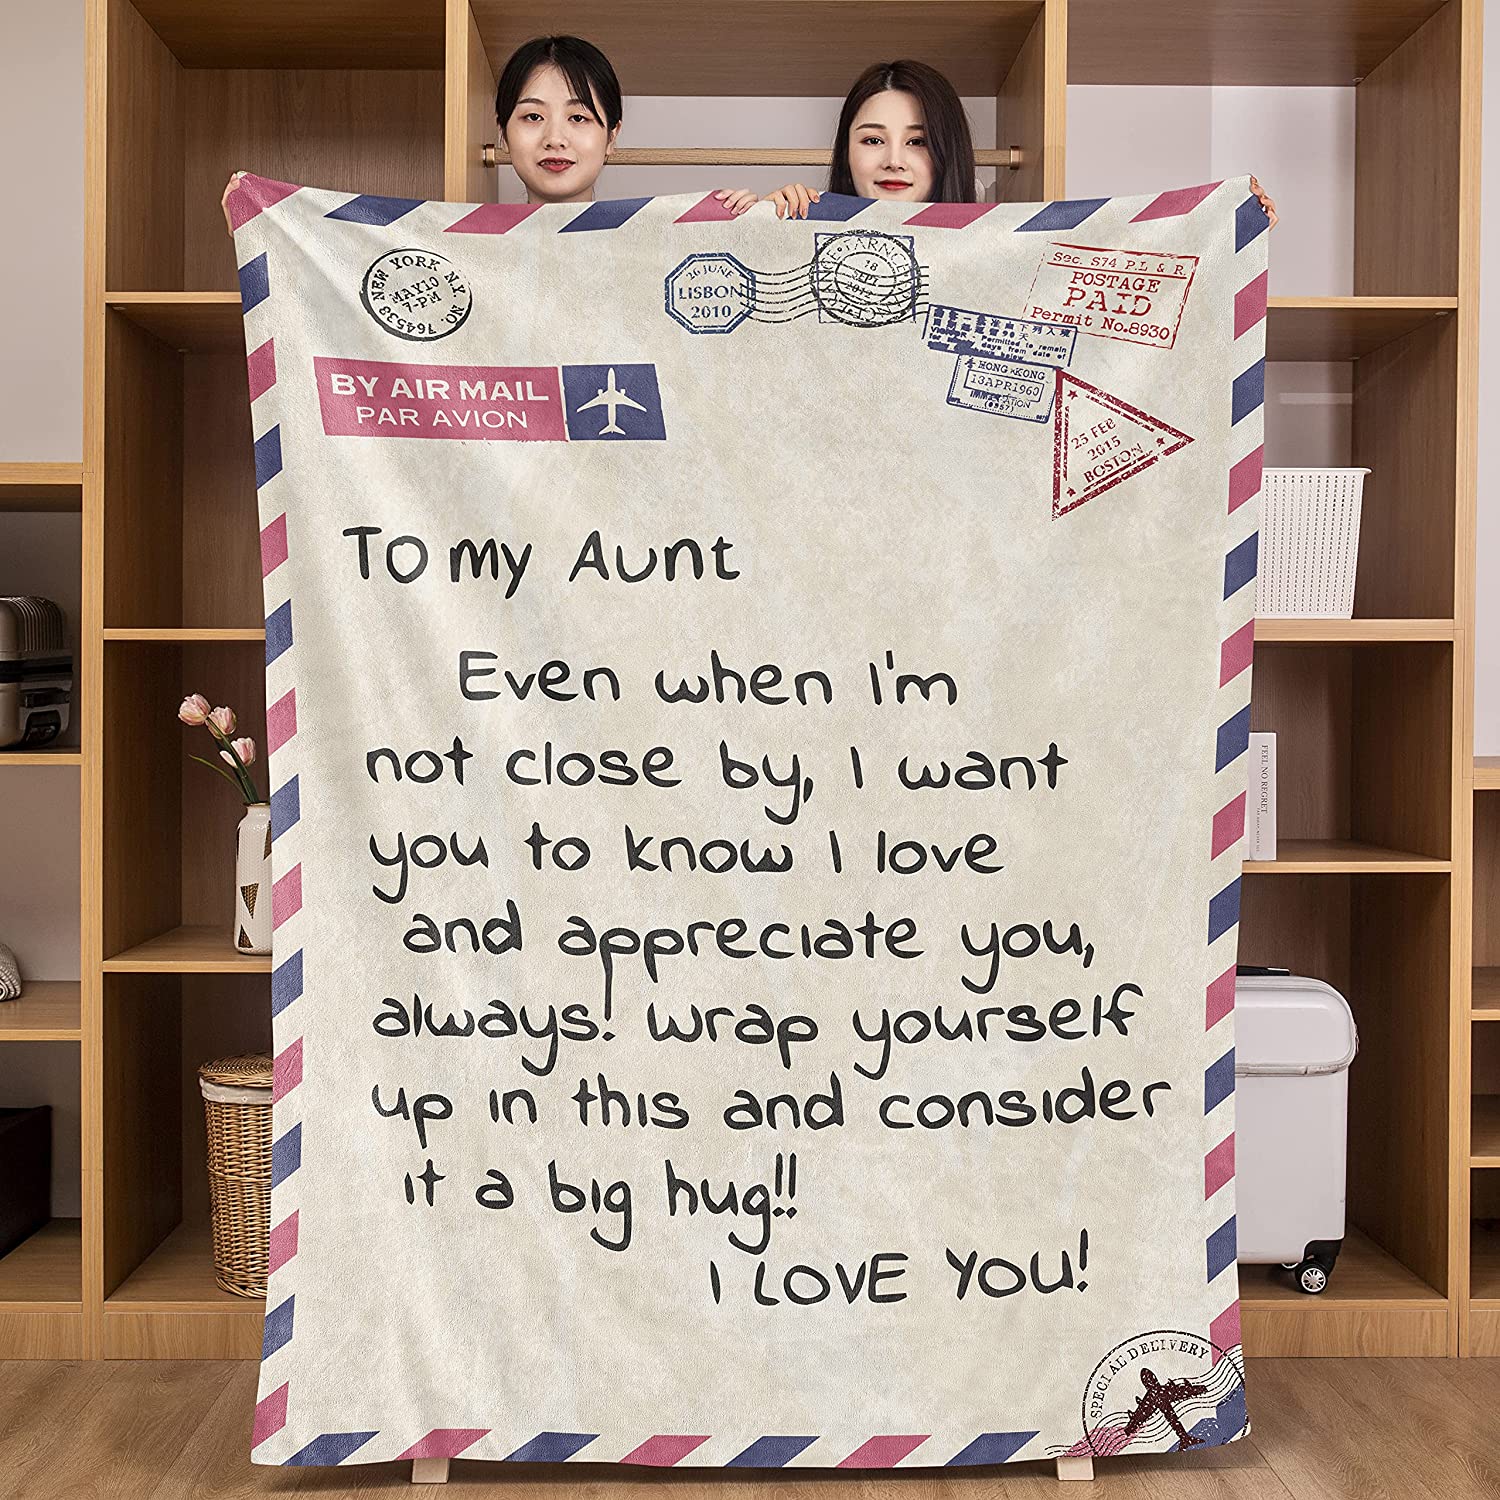 NEW YORK N.Y.
MAY10
7-PM
NO. 764533
26 JUNE
LISBON
2010
18
Sec. S74 P.L & R
POSTAGE
PAID
Permit No.8930
Permitted to remain
days from date of
HONG KONG
13APR1960
BY AIR MAIL
PAR AVION
25 FEB
2015
BOSTON
To my Aunt
Even when I'm
not close by, I want
you to know I love
and appreciate you,
always! Wrap yourself
up in this and consider
it a big hug!!
I LOVE YOU!
FEEL NO REGRET
SPECIAL DELIVERY